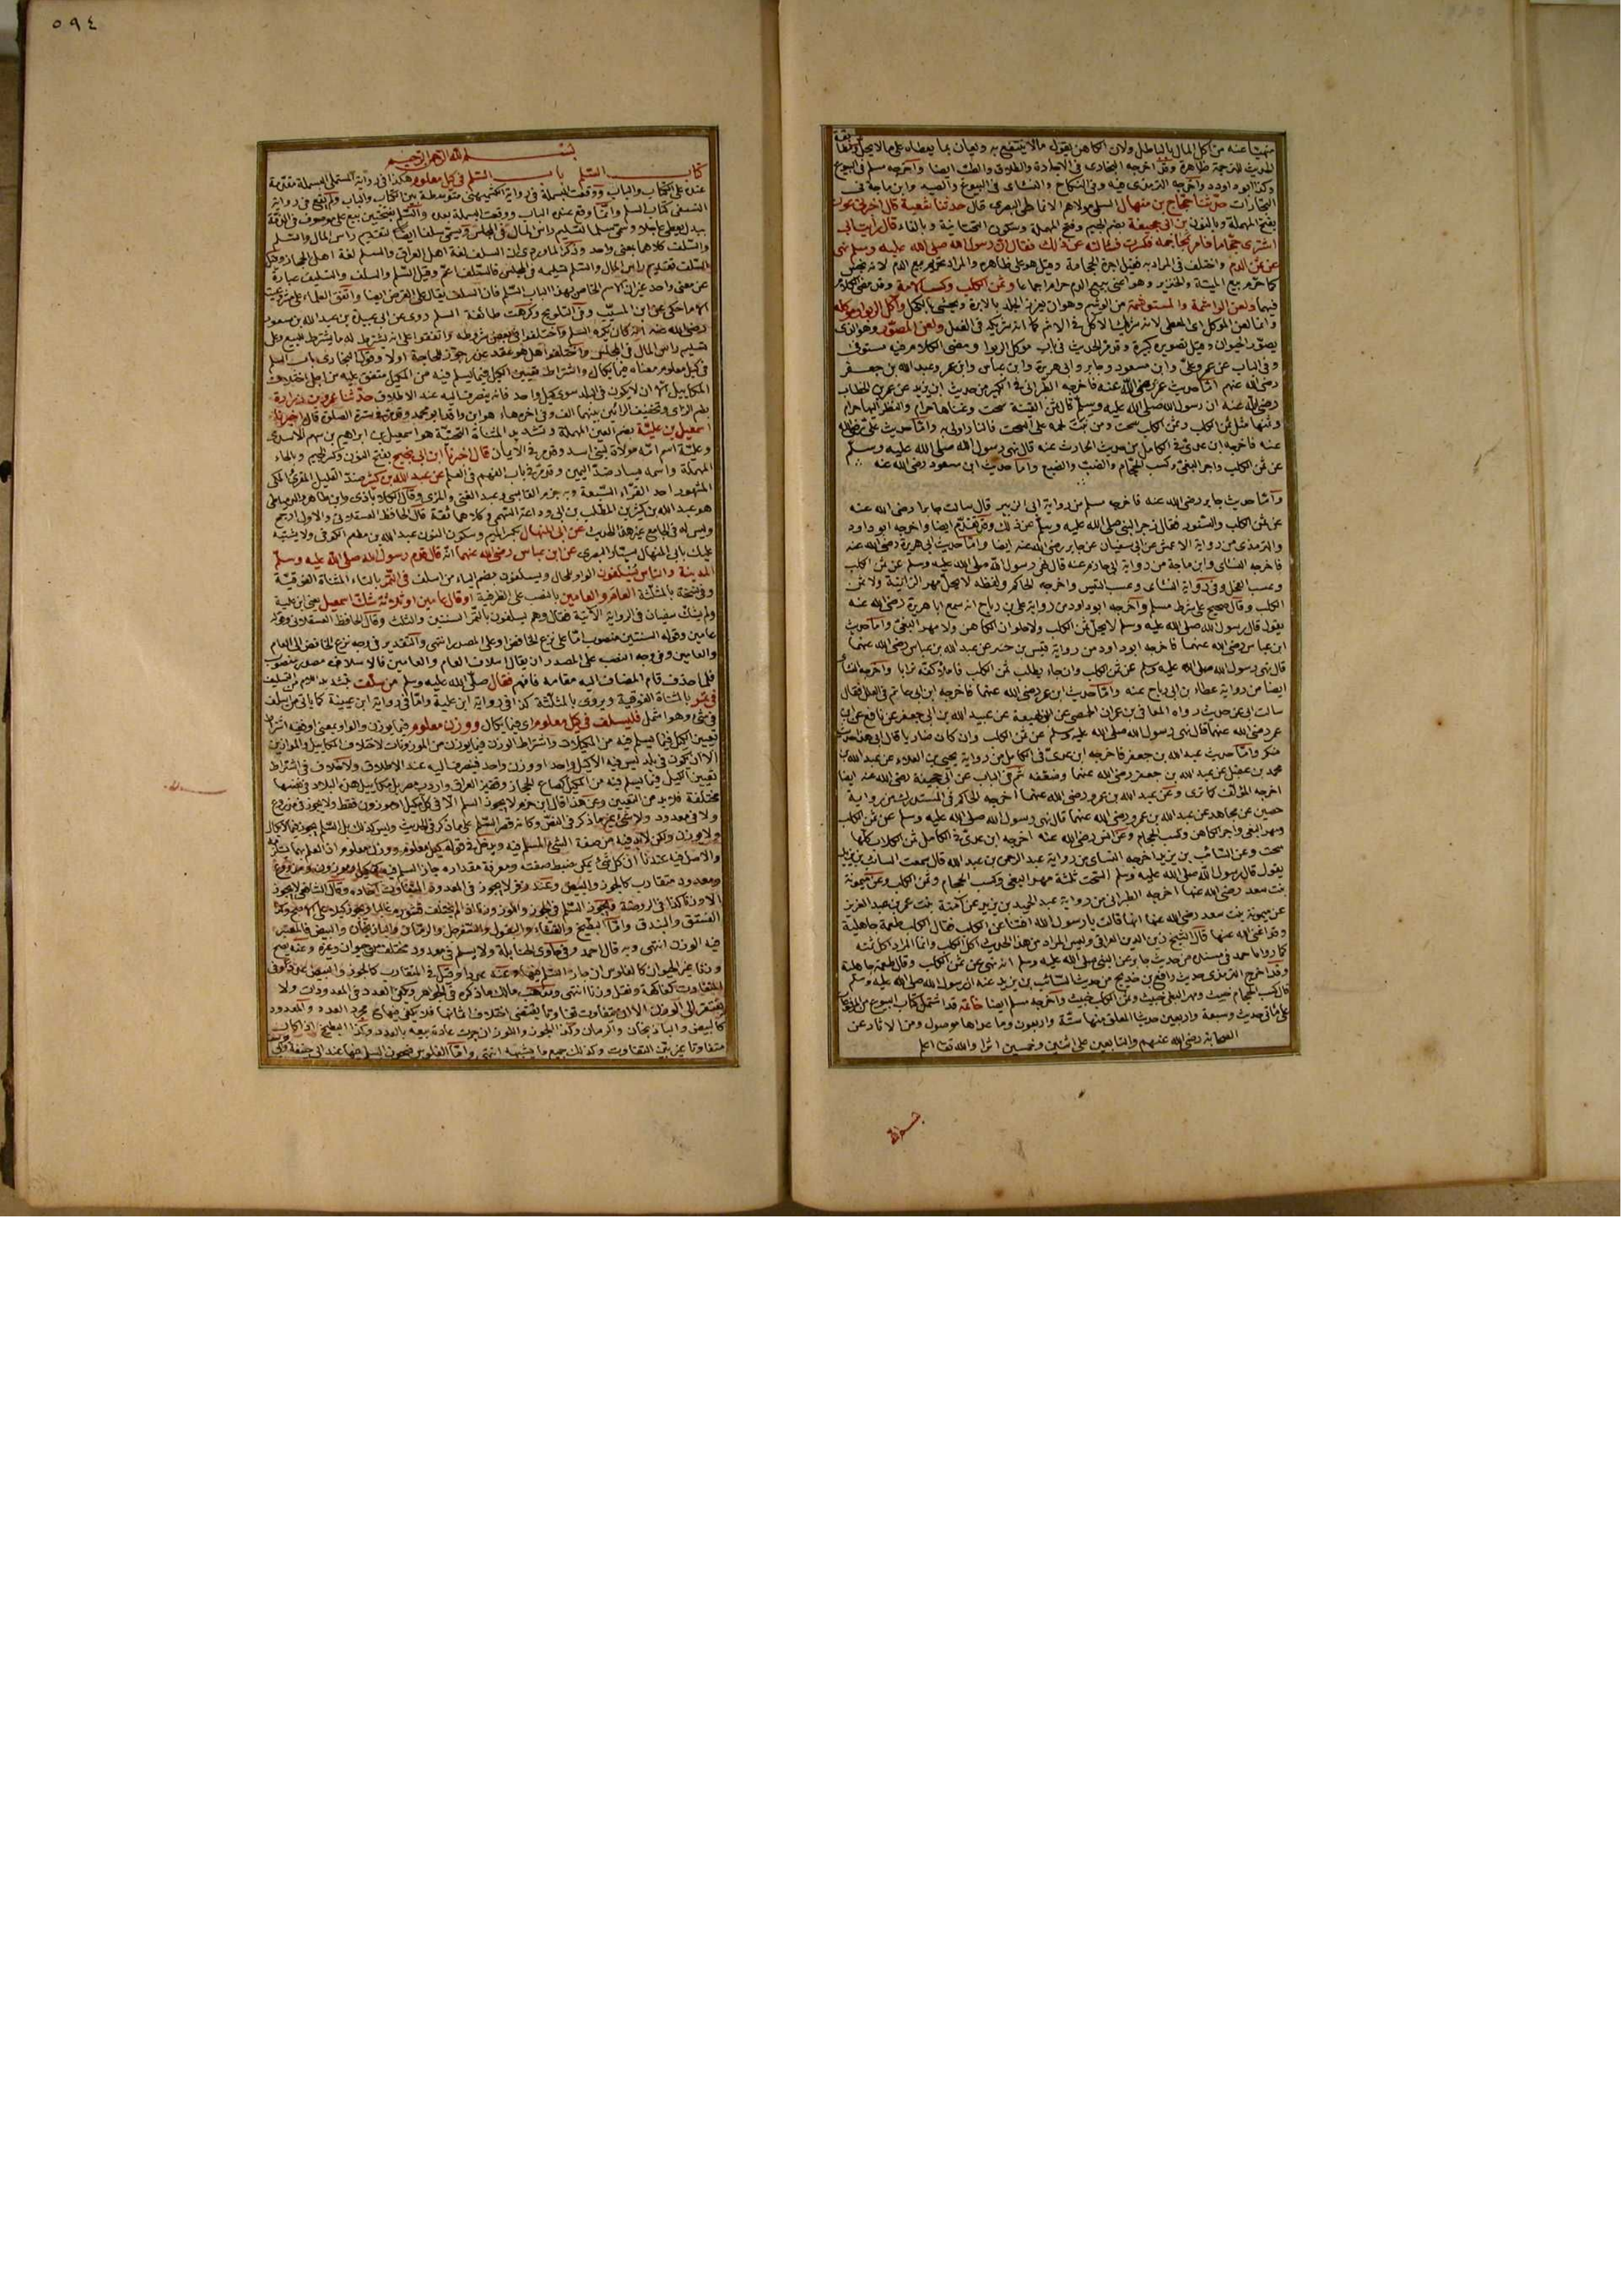 منهيّا عنه من اكل المال بالباطل ولان الكاهن يقول ما لا ينتفع به ويعان بما يعطاه على ما لا يحل
الحديث للترجمة ظاهرة وقد اخرجه البخارى فى الاجارة والطلاق والطب ايضا واخرجه مسلم فى البيوع
وكذا ابو داود واخرجه الترمذى فيه وفى النكاح والنسائى فى البيوع والصيد وابن ماجة فى
التجارات حدّثنا حجّاج بن منهال السلمى مولاهم الانماطى البصرى قال حدثنا شعبة قال اخبرنى عون
بفتح المهملة وبالنون بن ابى جحيفة بضم الجيم وفتح المهملة وسكون التحتانية وبالفاء قال رأيت ابى
اشترى حجّاما فامر بمحاجمه فكسرت فسألته عن ذلك فقال ان رسول الله صلى الله عليه وسلم نهى
عن ثمن الدم واختلف فى المراد به فقيل اجرة الحجامة وقيل هو على ظاهره والمراد تحريم بيع الدم
كما حرّم بيع الميتة والخنزير وهو اعنى بيع الدم حرام اجماعا وثمن الكلب وكسب الامة وقد مضى الكلام
فيهما ولعن الواشمة والمستوشمة من الوشم وهو ان يغرز الجلد بالابرة ويحشى بالكحل وآكل الربوا وموكله
وانما لعن الموكل اى المعطى لانه شريك الآكل فى الاثم كما انه شريكه فى الفعل ولعن المصوّر وهو الذى
يصوّر الحيوان وقد مرّ الحديث فى باب موكل الربوا ومضى الكلام فيه مستوفى
وفى الباب عن عمر وعلىّ وابن مسعود وجابر وابى هريرة وابن عباس وابن عمر وعبد الله بن جعفر
رضى الله عنهم امّا حديث عمر رضى الله عنه فاخرجه الطبرانى فى الكبير من حديث عن عمر بن الخطاب
رضى الله عنه ان رسول الله صلى الله عليه وسلم قال ثمن القينة سحت وغناها حرام والنظر اليها حرام
وثمنها مثل ثمن الكلب وثمن الكلب سحت ومن نبت لحمه على السحت فالنار اولى به وامّا حديث علىّ رضى الله
عنه فاخرجه ابن عدىّ فى الكامل من حديث الحارث عنه قال نهى رسول الله صلى الله عليه وسلم
عن ثمن الكلب واجر البغىّ وكسب الحجّام والضبّ والضبع وامّا حديث ابن مسعود رضى الله عنه
وامّا حديث جابر رضى الله عنه فاخرجه مسلم من رواية ابى الزبير قال سالت جابرا رضى الله عنه
عن ثمن الكلب والسنور فقال زجر النبى صلى الله عليه وسلم عن ذلك وقد تقدّم ايضا واخرجه ابو داود
والترمذى من رواية الاعمش عن ابى سفيان عن جابر رضى الله عنه ايضا وامّا حديث ابى هريرة رضى الله عنه
فاخرجه النسائى وابن ماجة من رواية ابى حازم عنه قال نهى رسول الله صلى الله عليه وسلم عن ثمن الكلب
وعسب الفحل وفى رواية النسائى وعسب التيس واخرجه الحاكم ولفظه لا يحلّ مهر الزانية ولا ثمن
الكلب وقال صحيح على شرط مسلم واخرجه ابو داود من رواية على بن رباح انه سمع ابا هريرة رضى الله عنه
يقول قال رسول الله صلى الله عليه وسلم لا يحلّ ثمن الكلب ولا حلوان الكاهن ولا مهر البغىّ وامّا حديث
ابن عباس رضى الله عنهما فاخرجه ابو داود من رواية قيس بن حبتر عن عبد الله بن عباس رضى الله عنهما
قال نهى رسول الله صلى الله عليه وسلم عن ثمن الكلب وان جاء يطلب ثمن الكلب فاملأ كفّه ترابا واخرجه النسائى
ايضا من رواية عطاء بن ابى رباح عنه وامّا حديث ابن عمر رضى الله عنهما فاخرجه ابن ابى حاتم فى العلل فقال
سالت ابى عن حديث رواه المعافى بن عمران الحمصى عن ابن لهيعة عن عبيد الله بن ابى جعفر عن نافع عن ابن
عمر رضى الله عنهما قال نهى رسول الله صلى الله عليه وسلم عن ثمن الكلب وان كان ضاريا قال ابى هذا حديث
منكر وامّا حديث عبد الله بن جعفر فاخرجه ابن عدىّ فى الكامل من رواية يحيى بن العلاء عن عبد الله بن
محمد بن عقيل عن عبد الله بن جعفر رضى الله عنهما وضعّفه ثم فى الباب عن ابى جحيفة رضى الله عنه ايضا
اخرجه المؤلف كما ترى وعن عبد الله بن عمرو رضى الله عنهما اخرجه الحاكم فى المستدرك من رواية
حصين عن مجاهد عن عبد الله بن عمرو رضى الله عنهما قال نهى رسول الله صلى الله عليه وسلم عن ثمن الكلب
ومهر البغى واجر الكاهن وكسب الحجام وعن انس رضى الله عنه اخرجه ابن عدىّ فى الكامل ثمن الكلاب كلها
سحت وعن السّائب بن يزيد اخرجه النسائى من رواية عبد الرحمن بن عبد الله قال سمعت السائب بن يزيد
يقول قال رسول الله صلى الله عليه وسلم السحت ثلثة مهر البغى وكسب الحجام وثمن الكلب وعن ميمونة
بنت سعد رضى الله عنها اخرجه الطبرانى من رواية عبد الحميد بن يزيد عن آمنة بنت عمر بن عبد العزيز
عن ميمونة بنت سعد رضى الله عنها انها قالت يا رسول الله افتنا عن الكلب فقال الكلب طعمة جاهلية
وقد اغنى الله عنها قال الشيخ زين الدين العراقى وليس المراد من هذا الحديث اكل الكلب وانما المراد اكل ثمنه
كما رواه احمد فى مسنده من حديث جابر عن النبى صلى الله عليه وسلم انه نهى عن ثمن الكلب وقال طعمة جاهلية
وقد اخرج الترمذى حديث رافع بن خديج من حديث السّائب بن يزيد عنه ان رسول الله صلى الله عليه وسلم
قال كسب الحجام خبيث ومهر البغى خبيث وثمن الكلب خبيث واخرجه مسلم ايضا خاتمة قد اشتمل كتاب البيوع من المرفوع
على مائتى حديث وسبعة واربعين حديثا المعلق منها ستّة واربعون وما عداها موصول ومن الاثار عن
الصحابة رضى الله عنهم والتابعين على اثنين وخمسين اثرا والله تعالى اعلم
٥٩٤
بسم الله الرحمن الرحيم
كتاب السّلم باب السّلم فى كيل معلوم هكذا فى رواية المستملى البسملة مقدّمة
عنده على الكتاب والباب ووقعت البسملة فى رواية الكشميهنى متوسطة بين الكتاب والباب ولم يقع فى رواية
النسفى كتاب السلم وانّما وقع عنده الباب ووقعت البسملة بعده والسّلم بفتحتين بيع على موصوف فى الذمّة
ببدل يعطى عاجلا وسمّى سلما لتسليم راس المال فى المجلس ويسمّى سلفا ايضا لتقديم راس المال والسّلم
والسّلف كلاهما بمعنى واحد وذكر الماوردى ان السلف لغة اهل العراق والسلم لغة اهل الحجاز وقيل
السّلف تقديم راس المال والسّلم تسليمه فى المجلس فالسّلف اعمّ وقيل السّلم والسلف والتسليف عبارة
عن معنى واحد غير انّ الاسم الخاص بهذا الباب السّلم فان السلف يقال على القرض ايضا واتفق العلماء على مشروعيته
الا ما حكى عن ابن المسيّب وفى التلويح وكرهت طائفة السلم روى عن ابى عبيدة بن عبد الله بن مسعود
رضى الله عنه انّه كان يكره السلم واختلفوا فى بعض شروطه واتفقوا على انه يشترط له ما يشترط للبيع وعلى
تسليم راس المال فى المجلس واختلفوا هل هو عقد غرر جوّز للحاجة او لا وقول البخارى باب السلم
فى كيل معلوم معناه فيما يكال واشتراط تعيين الكيل فيما يسلم فيه من المكيل متفق عليه من اجل اختلاف
المكاييل الّا ان لا يكون فى البلد سوى كيل واحد فانه ينصرف اليه عند الاطلاق حدّثنا عمرو بن زرارة
بضم الزاى وتخفيف الرائين بينهما الف وفى اخره هاء هو ابن واقد ابو محمد وقد مرّ فى سترة الصلوة قال اخبرنا
اسمعيل بن عليّة بضم العين المهملة وتشديد المثناة التحتيّة هو اسمعيل بن ابراهيم بن سهم الاسدى
وعليّة اسم امّه مولاة لبنى اسد وقد مرّ فى الايمان قال اخبرنا ابن ابى نجيح بفتح النون وكسر الجيم وبالحاء
المهملة واسمه يسار ضدّ اليمين وقد مرّ فى باب الفهم فى العلم عن عبد الله بن كثير ضدّ القليل المقرئ المكى
المشهور احد القرّاء السّبعة وبه جزم القابسى وعبد الغنى والمزى وقال الكلاباذى وابن طاهر والدمياطى
هو عبد الله بن كثير بن المطّلب بن ابى وداعة السّهمى وكلاهما ثقة قال الحافظ العسقلانى والاول ارجح
وليس له فى الجامع غير هذا الحديث عن ابى المنهال بكسر الميم وسكون النون عبد الله بن مطعم الكوفى ولا يشتبه
عليك بابى المنهال سيّار البصرى عن ابن عباس رضى الله عنهما انّه قال قدم رسول الله صلى الله عليه وسلم
المدينة والناس يُسْلِفون الواو للحال ويسلفون بضم الياء من اسلف فى الثّمر بالتاء المثناة الفوقيّة
وفى نسخة بالمثلّثة العام والعامين بالنصب على الظرفية او قال عامين او ثلاثة شكّ اسمعيل يعنى ابن علية
ولم يشكّ سفيان فى الرواية الآتية فقال وهم يسلفون بالثّمر السنتين والثلث وقال الحافظ العسقلانى وقوله
عامين وقوله السنتين منصوب امّا على نزع الخافض او على المصدر انتهى والتقدير فى وجه نزع الخافض الى العام
والعامين وفى وجه النصب على المصدر ان يقال اسلاف العام والعامين فالاسلاف مصدر منصوب
فلما حذف قام المضاف اليه مقامه فافهم فقال صلّى الله عليه وسلم من سلّف بتشديد اللام من التسليف
فى تمر بالمثناة الفوقية ويروى بالمثلّثة كذا فى رواية ابن علية وامّا فى رواية ابن عيينة كما ياتى من اسلف
فى شئ وهو اشمل فليسلف فى كيل معلوم اى فيما يكال ووزن معلوم فيما يوزن والواو بمعنى او وفيه اشتراط
تعيين الكيل فيما يسلم فيه من المكيلات واشتراط الوزن فيما يوزن من الموزونات لاختلاف المكاييل والموازين
الّا ان يكون فى بلد ليس فيه الّا كيل واحد او وزن واحد فينصرف اليه عند الاطلاق ولا خلاف فى اشتراط
تعيين الكيل فيما يسلم فيه من المكيل كصاع الحجاز وقفيز العراق واردب مصر بل مكاييل هذه البلاد فى نفسها
مختلفة فلا بد من التعيين وعن هذا قال ابن حزم لا يجوز السلم الّا فى كل مكيل او موزون فقط ولا يجوز فى مزروع
ولا فى معدود ولا شئ غير ما ذكر فى النصّ وكانه قصر السّلم على ما ذكر فى الحديث وليس كذلك بل السّلم يجوز فيما لا يكال
ولا يوزن ولكن لا بدّ فيه من صفة الشئ المسلم فيه ويدخل فى قوله كيل معلوم ووزن معلوم اذ العلم بهما يستلزمه
والاصل فيه عندنا ان كل شئ يمكن ضبط صفته ومعرفة مقداره جاز السلم فيه كمكيل وموزون ومزروع
ومعدود متقارب كالجوز والبيض وعند زفر لا يجوز فى المعدود المتفاوت آحاده وقال الشافعى لا يجوز
الّا وزنا كذا فى الروضة ويجوز السّلم فى الجوز واللوز وزنا اذا لم يختلف قشوره غالبا ويجوز كيلا على الاصح وكذا
الفستق والبندق وامّا البطّيخ والقثّاء والبقول والسّفرجل والرمّان والباذنجان والبيض فالمعتبر
فيه الوزن انتهى وبه قال احمد وفى حاوى الحنابلة ولا يسلم فى معدود مختلف من حيوان وغيره وعنه يصحّ
وزنا غير الحيوان كالفلوس ان جاز السّلم فيها وعنه عددا وقيل فى المتقارب كالجوز والبيض عددا وفى
المتفاوت كفاكهة وبقل وزنا انتهى ومذهب مالك ما ذكره فى الجواهر ويكفى العدد فى المعدودات ولا
يفتقر الى الوزن الّا ان يتفاوت تفاوتا يقتضى اختلاف اثمانها فلا يكفى فيها مجرد العدد والمعدود
كالبيض والباذنجان والرمان وكذا الجوز واللوز ان جرت عادة بيعه بالعدد وكذا البطيخ اذا كان
متفاوتا غير بيّن التفاوت وكذلك جميع ما يشبهه انتهى وامّا الفلوس فيجوز السلم فيها عند ابى حنيفة